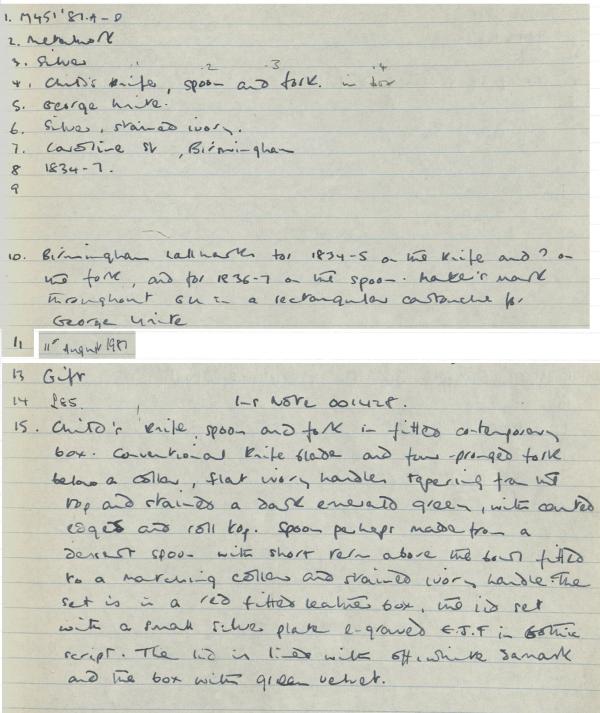 1. M451'87.A-D
2. Metalwork
3. Silver
.1 .2 .3 .4
4. Child's knife, spoon and fork. in box
5. George Unite.
6. Silver, stained ivory.
7. Caroline St, Birmingham
8 1834-7.
9
10. Birmingham hallmarks for 1834-5 on the knife and ? on
the fork, and for 1836-7 on the spoon. Maker's mark
throughout GU in a rectangular cartouche for
George Unite
11 11th August 1987
13 Gift
14 £85. Ins Note 001428.
15. Child's knife, spoon and fork in fitted contemporary
box. Conventional knife blade and four-pronged fork
below a collar, flat ivory handles tapering from the
top and stained a dark emerald green, with canted
edges and roll top. Spoon perhaps made from a
dessert spoon with short stem above the bowl fitted
to a matching collar and stained ivory handle. The
set is in a red fitted leather box, the lid set
with a small silver plate engraved E.J.F in Gothic
script. The lid is lined with off-white damask
and the box with green velvet.